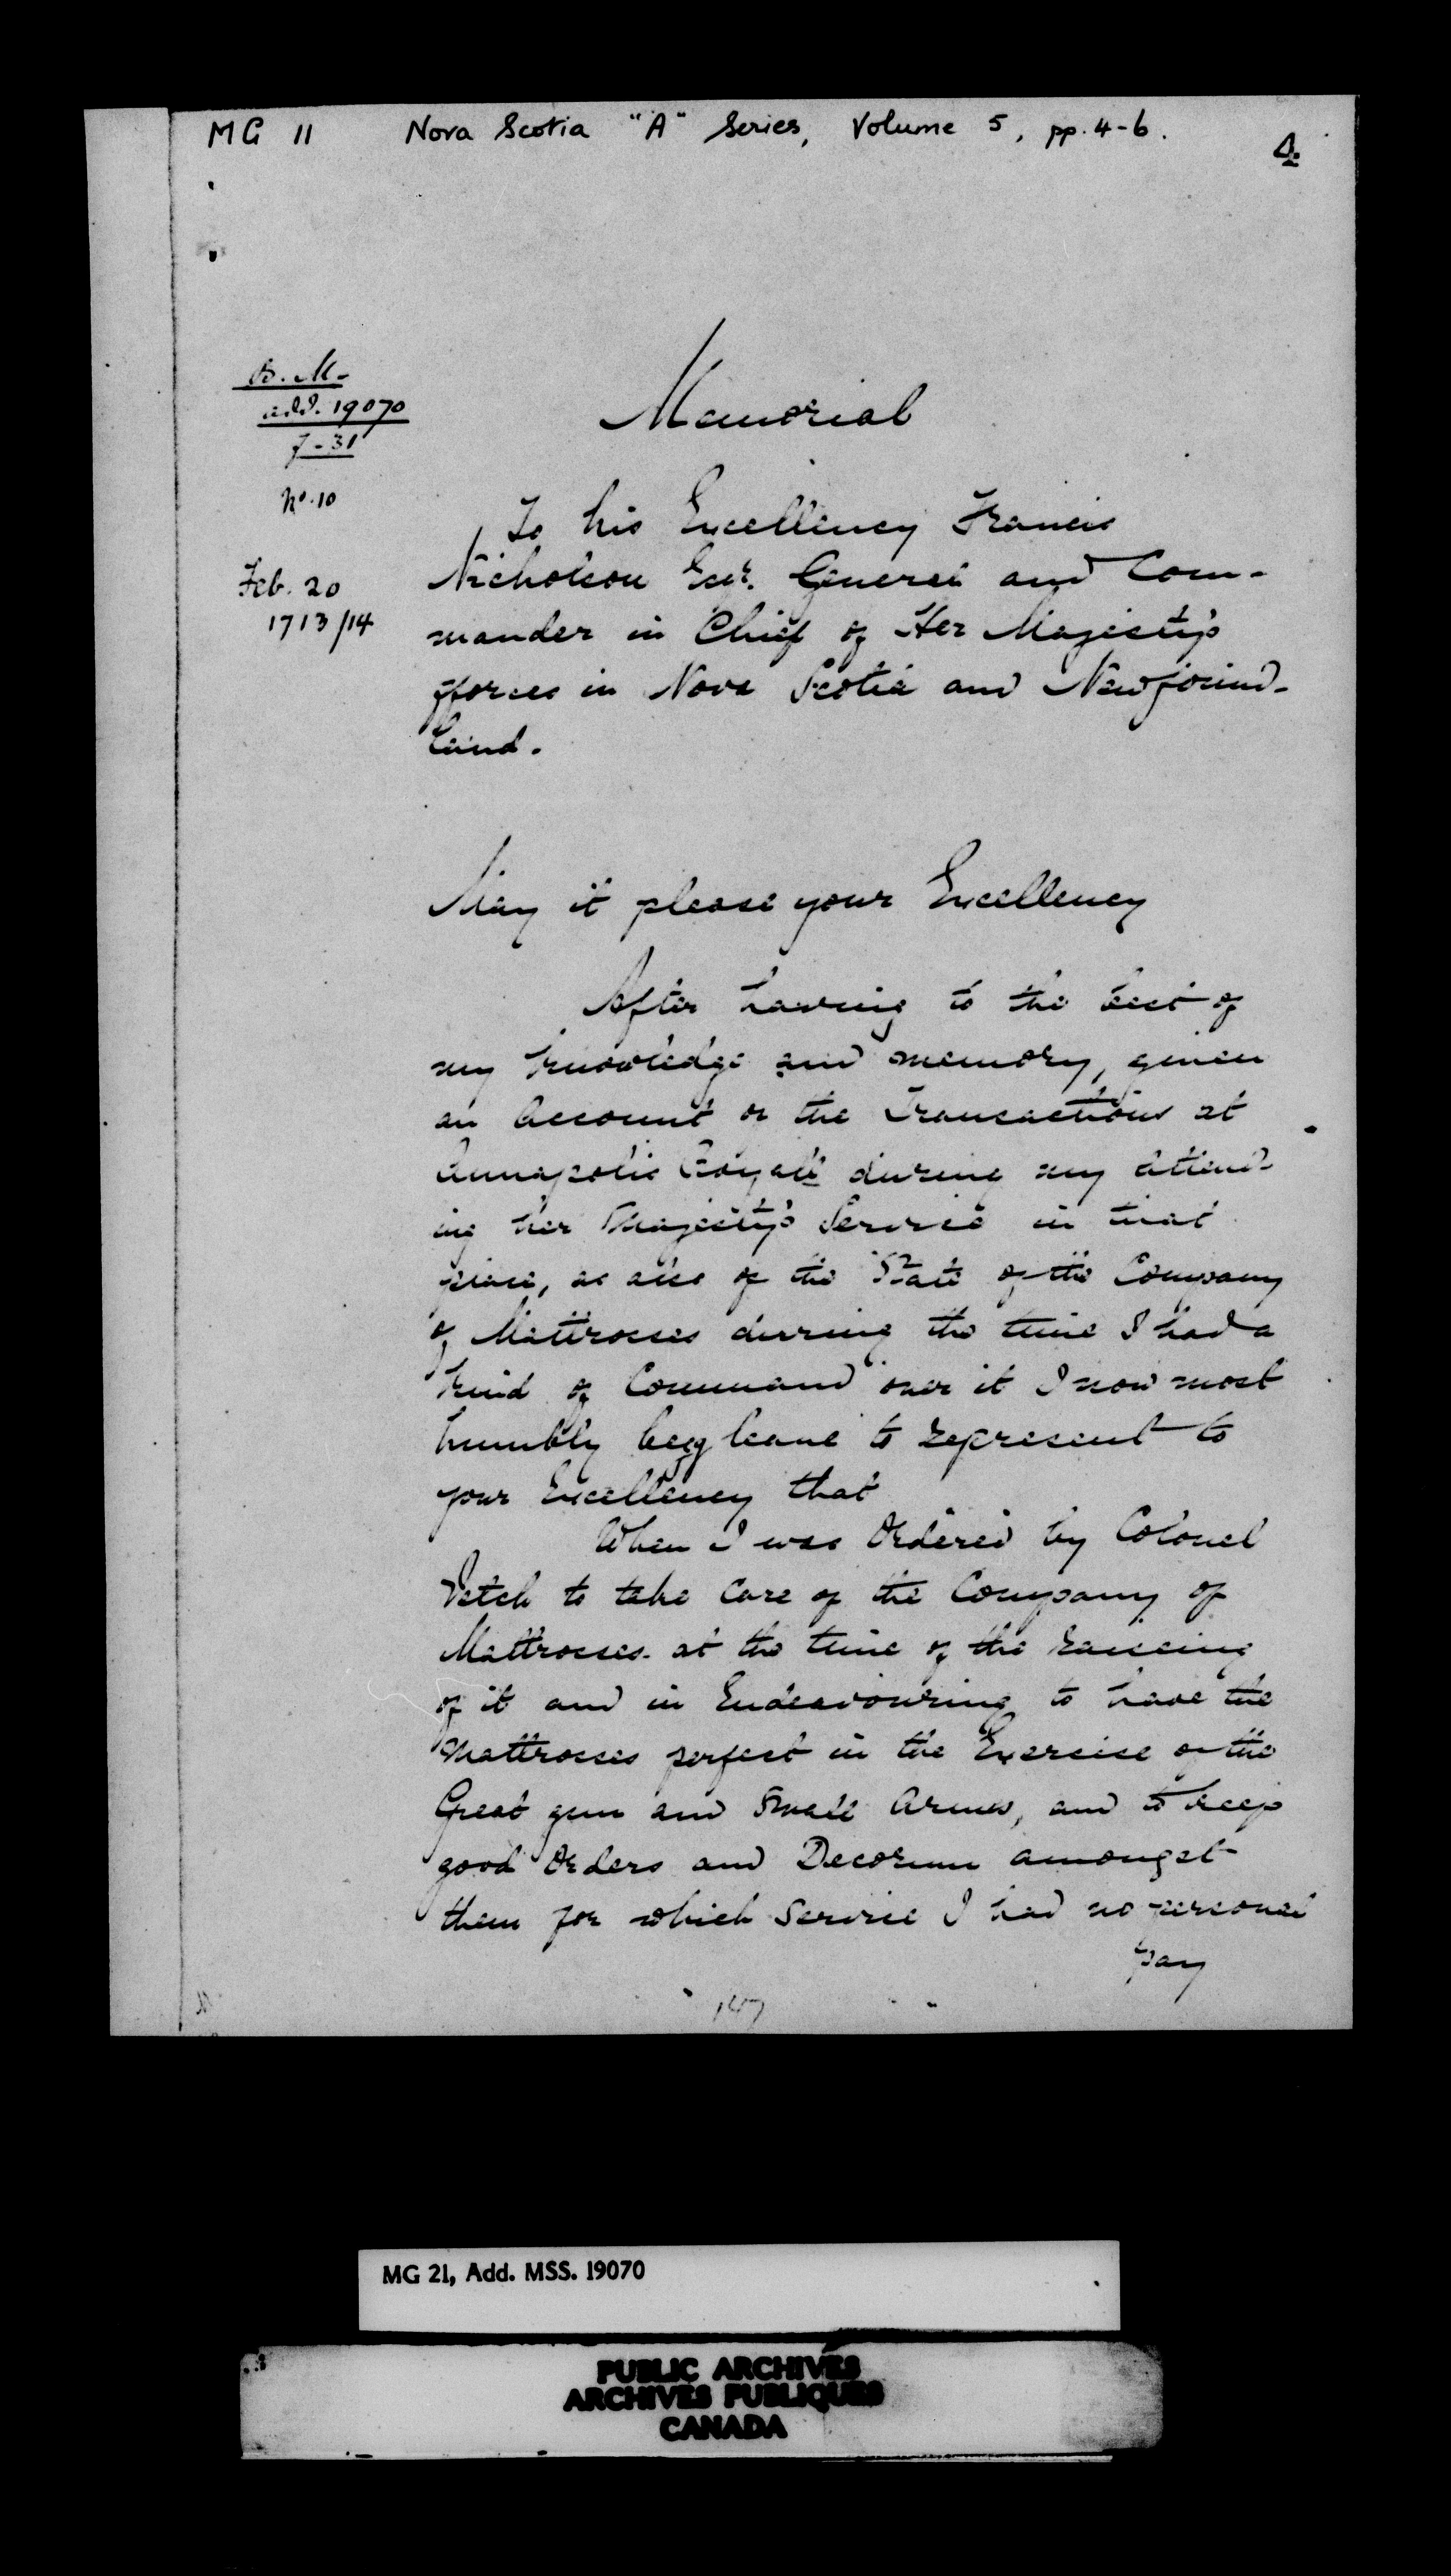 MG 11 Nova Scotia "A" Series, Volume 5, pp. 4-6.
4.
B. M.
add. 19070
f-31
No. 10
Feb. 20
1713/14
Memorial
To his Excellency Francis
Nicholson Esqr. General and Com-
mander in Chief of Her Majesty's
fforces in Nova Scotia and Newfound-
land.
May it please your Excellency
After having to the best of
my knowledge and memory, given
an Account of the Transactions at
Annapolis Royall during my attend-
ing her Majesty's Service in that
place, as also of the State of the Company
of Mattrosses during the time I had a
kind of Command over it I now most
humbly begg leave to represent to
your Excellency that
When I was Ordered by Colonel
Vetch to take Care of the Company of
Mattrosses at the time of the raiseing
of it and in Endeavouring to have the
Mattrosses perfect in the Exercise of the
Great gun and Small Armes, and to keep
good Orders and Decorum amongst
them for which Service I had no personal
pay
147
MG 21, Add. MSS. 19070
PUBLIC ARCHIVES
ARCHIVES PUBLIQUES
CANADA